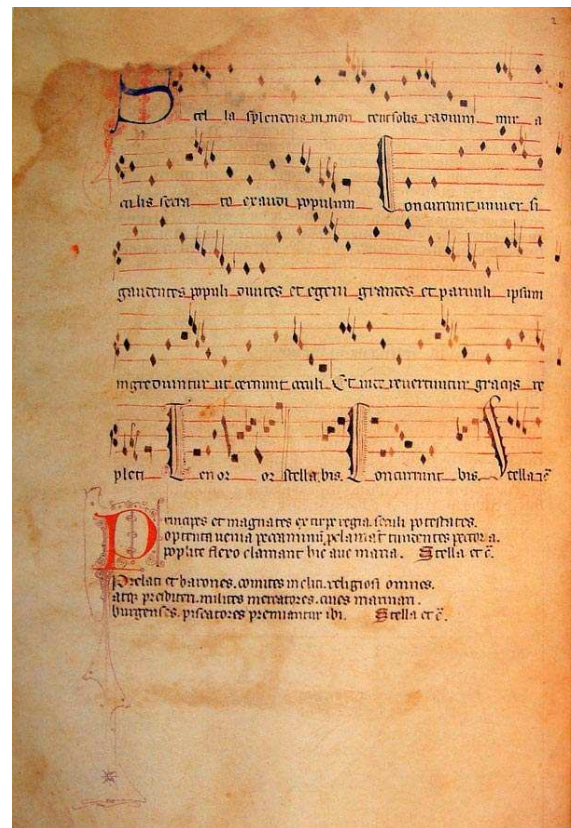 2
Stel la splendens in mon te ut solis radium mir a
culis serra to exaudi populum Concurrunt univer si
gaudentes populi divites et egeni grandes et parvuli ipsum
ingrediuntur ut cernunt oculi Et inde revertuntur gracijs re
pleti Tenor or stella. bis. Concurrunt bis. Stella
Principes et magnates ex stirpe regia. seculi potestates.
optenta venia peccaminum. pelamat tundentes pectora.
poplite flexo clamant hic ave maria. Stella et c̄.
Prelati et barones. comites incliti. religiosi omnes.
atq; presbiteri. milites mercatores. cives marinari.
burgenses. piscatores premiantur ibi. Stella et c̄.